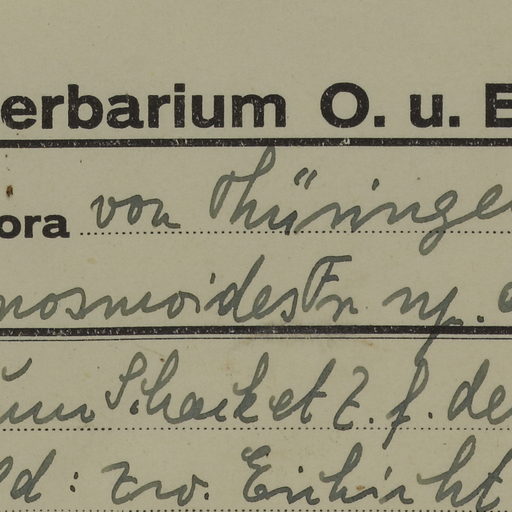 erbarium O. u. E
ora von Thüringe
nosmoides Fr. ssp.
Schack et Z. f. de
ld: zw. Eichicht